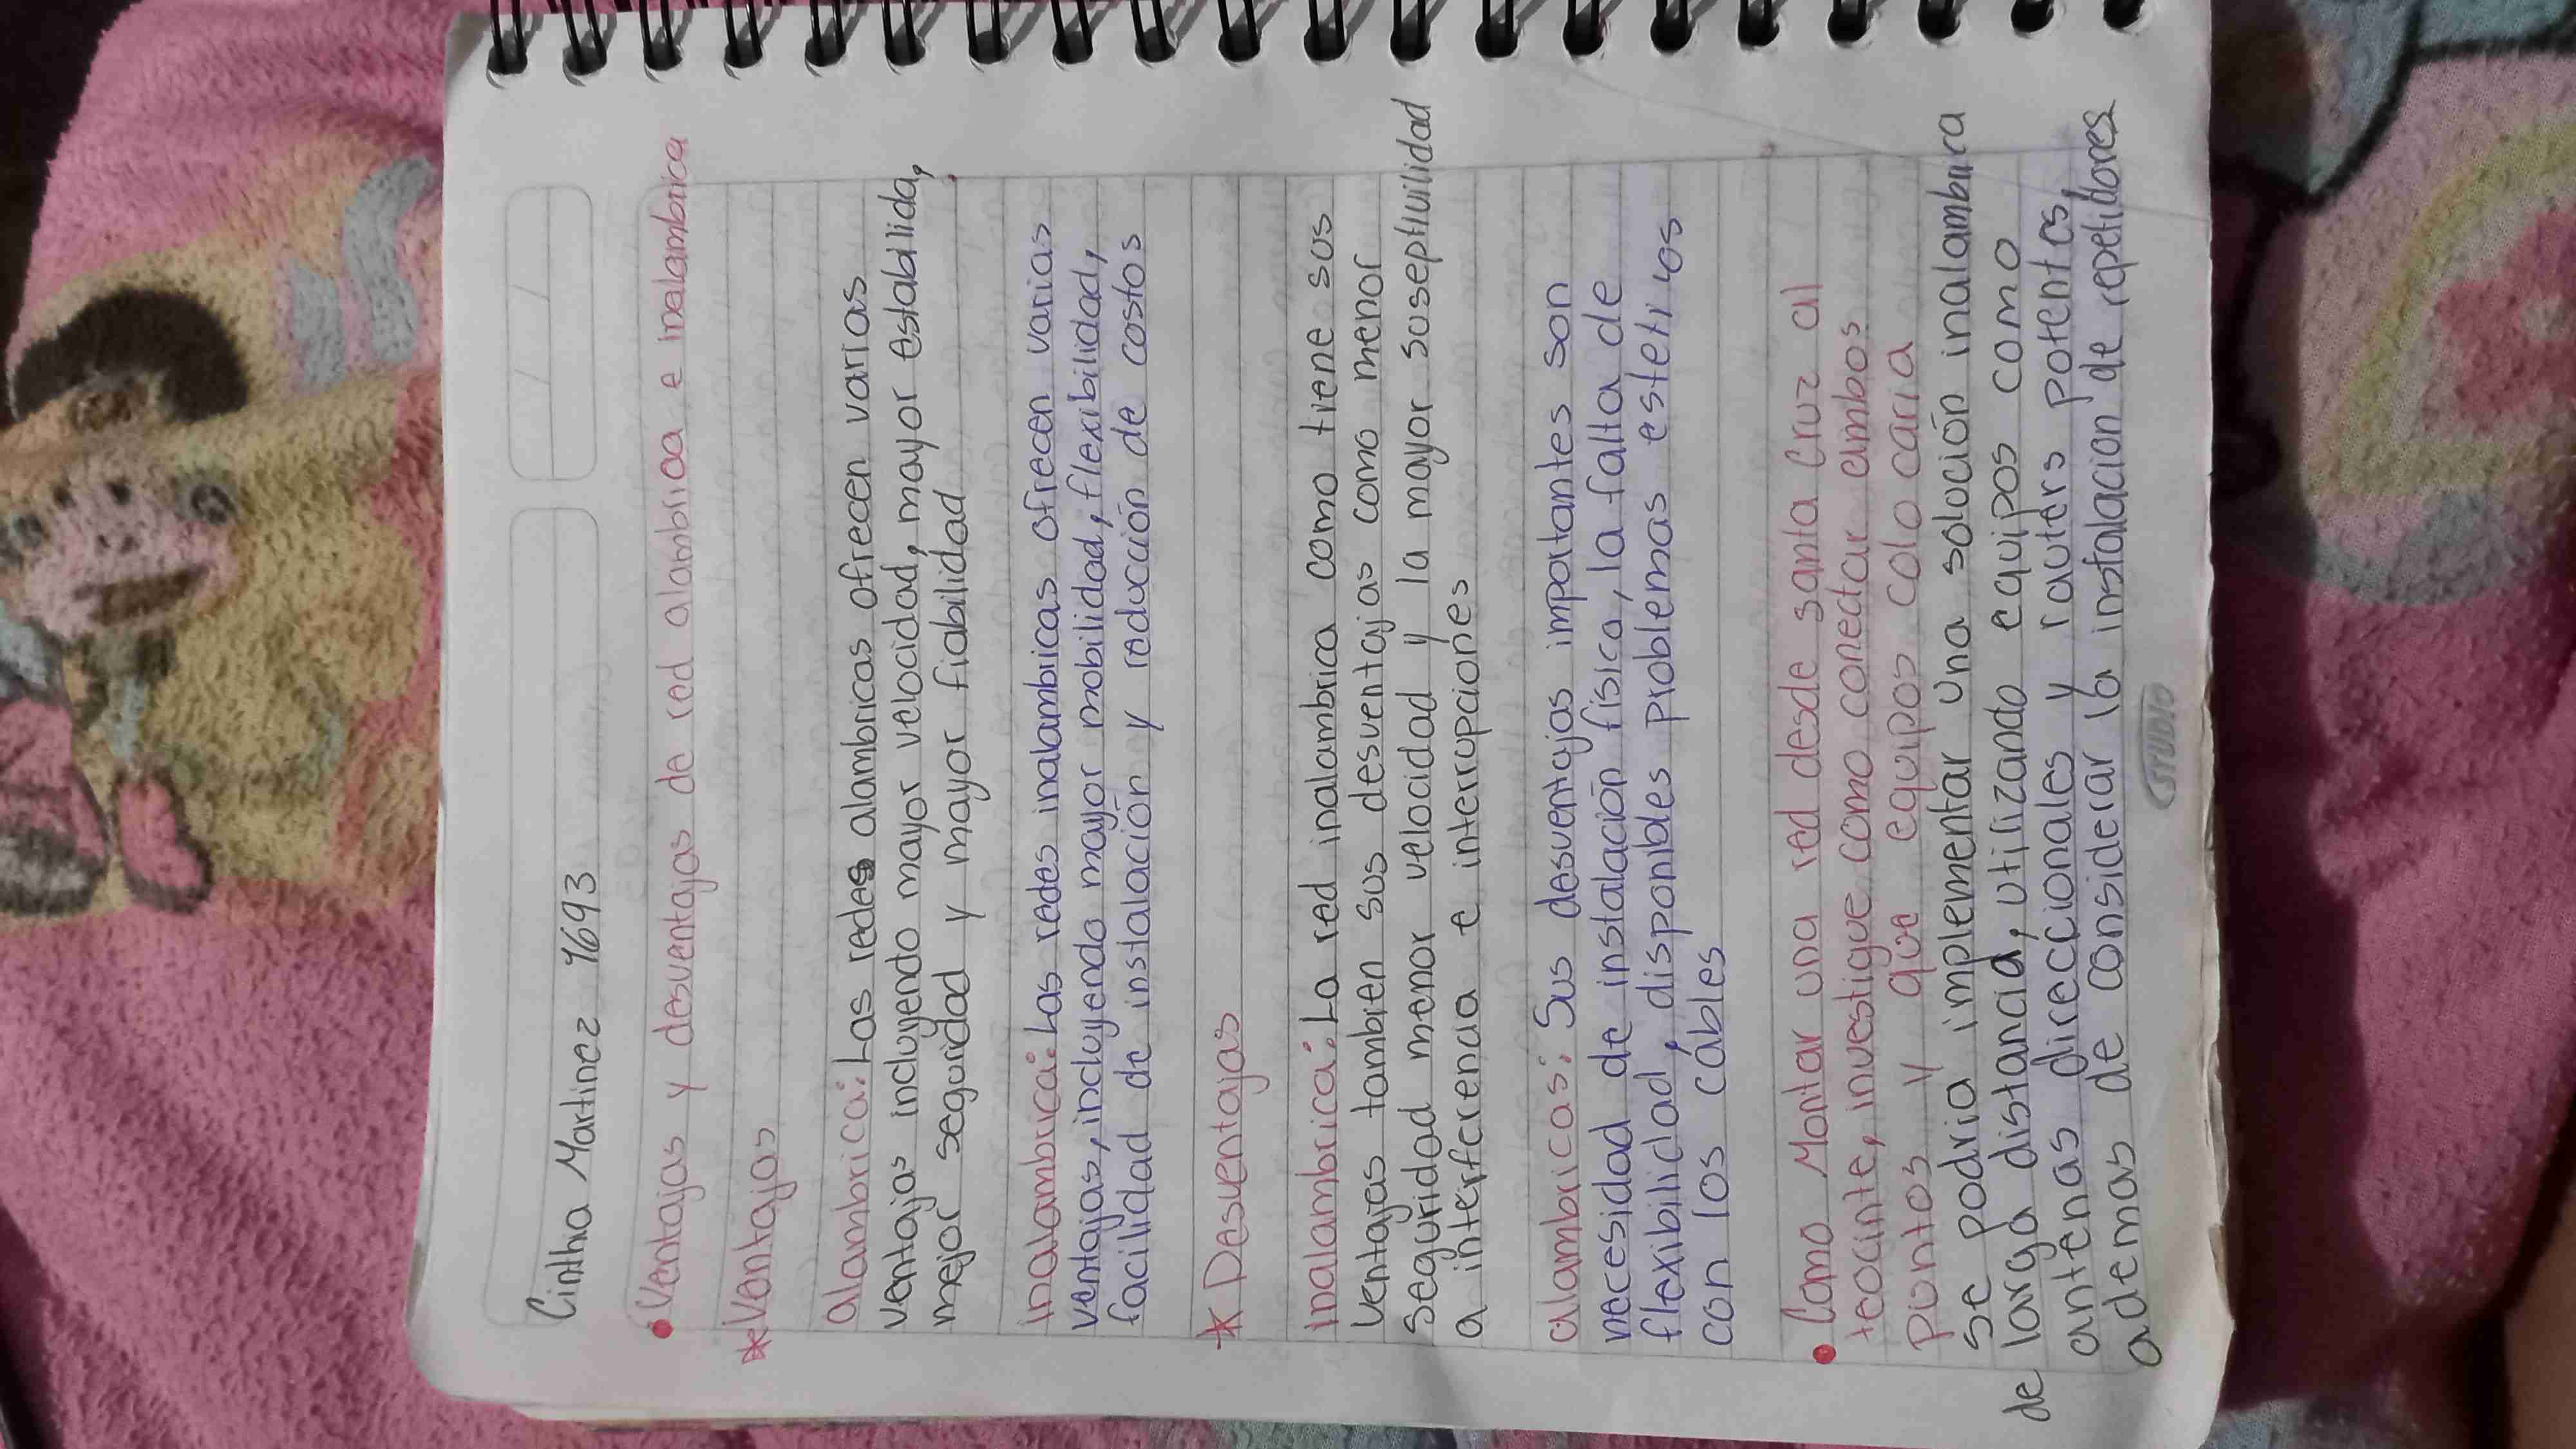 Cinthia Martinez 1693
• Ventajas y desventajas de red alambrica e inalambrica
* Ventajas
alambrica: Las redes alambricas ofrecen varias
ventajas incluyendo mayor velocidad, mayor establlida,
mejor seguridad y mayor fiabilidad
inalambrica: Las redes inalambricas ofrecen varias
ventajas, incluyendo mayor mobilidad, flexibilidad,
facilidad de instalación y reducción de costos
* Desventajas
inalambrica: La red inalambrica como tiene sus
ventajas tambien sus desventajas como menor
seguridad menor velocidad y la mayor suseptiuilidad
a interferencia e interrupciones
alambricas: Sus desventajas importantes son
necesidad de instalación física, la falta de
flexibilidad, disponibles problemas esteticos
con los cábles
• Como Montar una red desde santa Cruz al
teocinte, investigue como conectar ambos
puntos y que equipos colocaria
se podria implementar una solución inalambrica
de larga distancia, utilizando equipos como
antenas direccionales y rauters potentes,
ademas de considerar la instalacion de repetidores
STUDIO